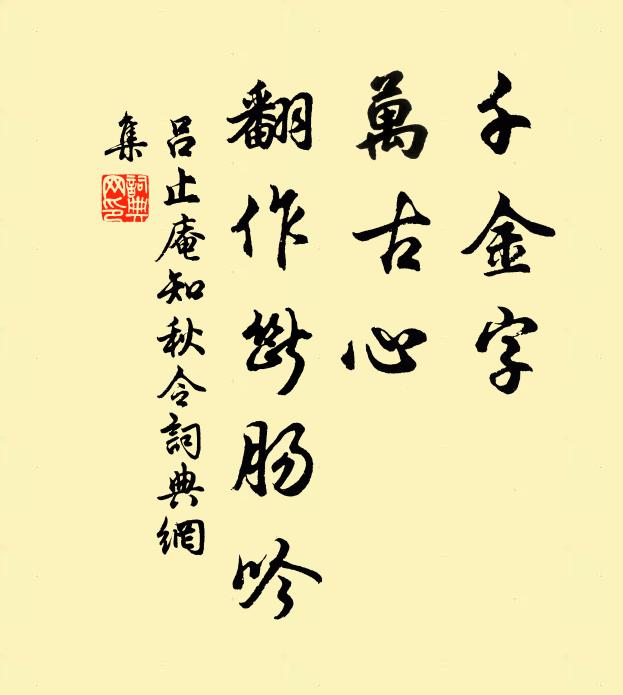 千金字
萬古心
翻作斷腸吟
呂止庵知秋令詞典網
集
詞典
网印